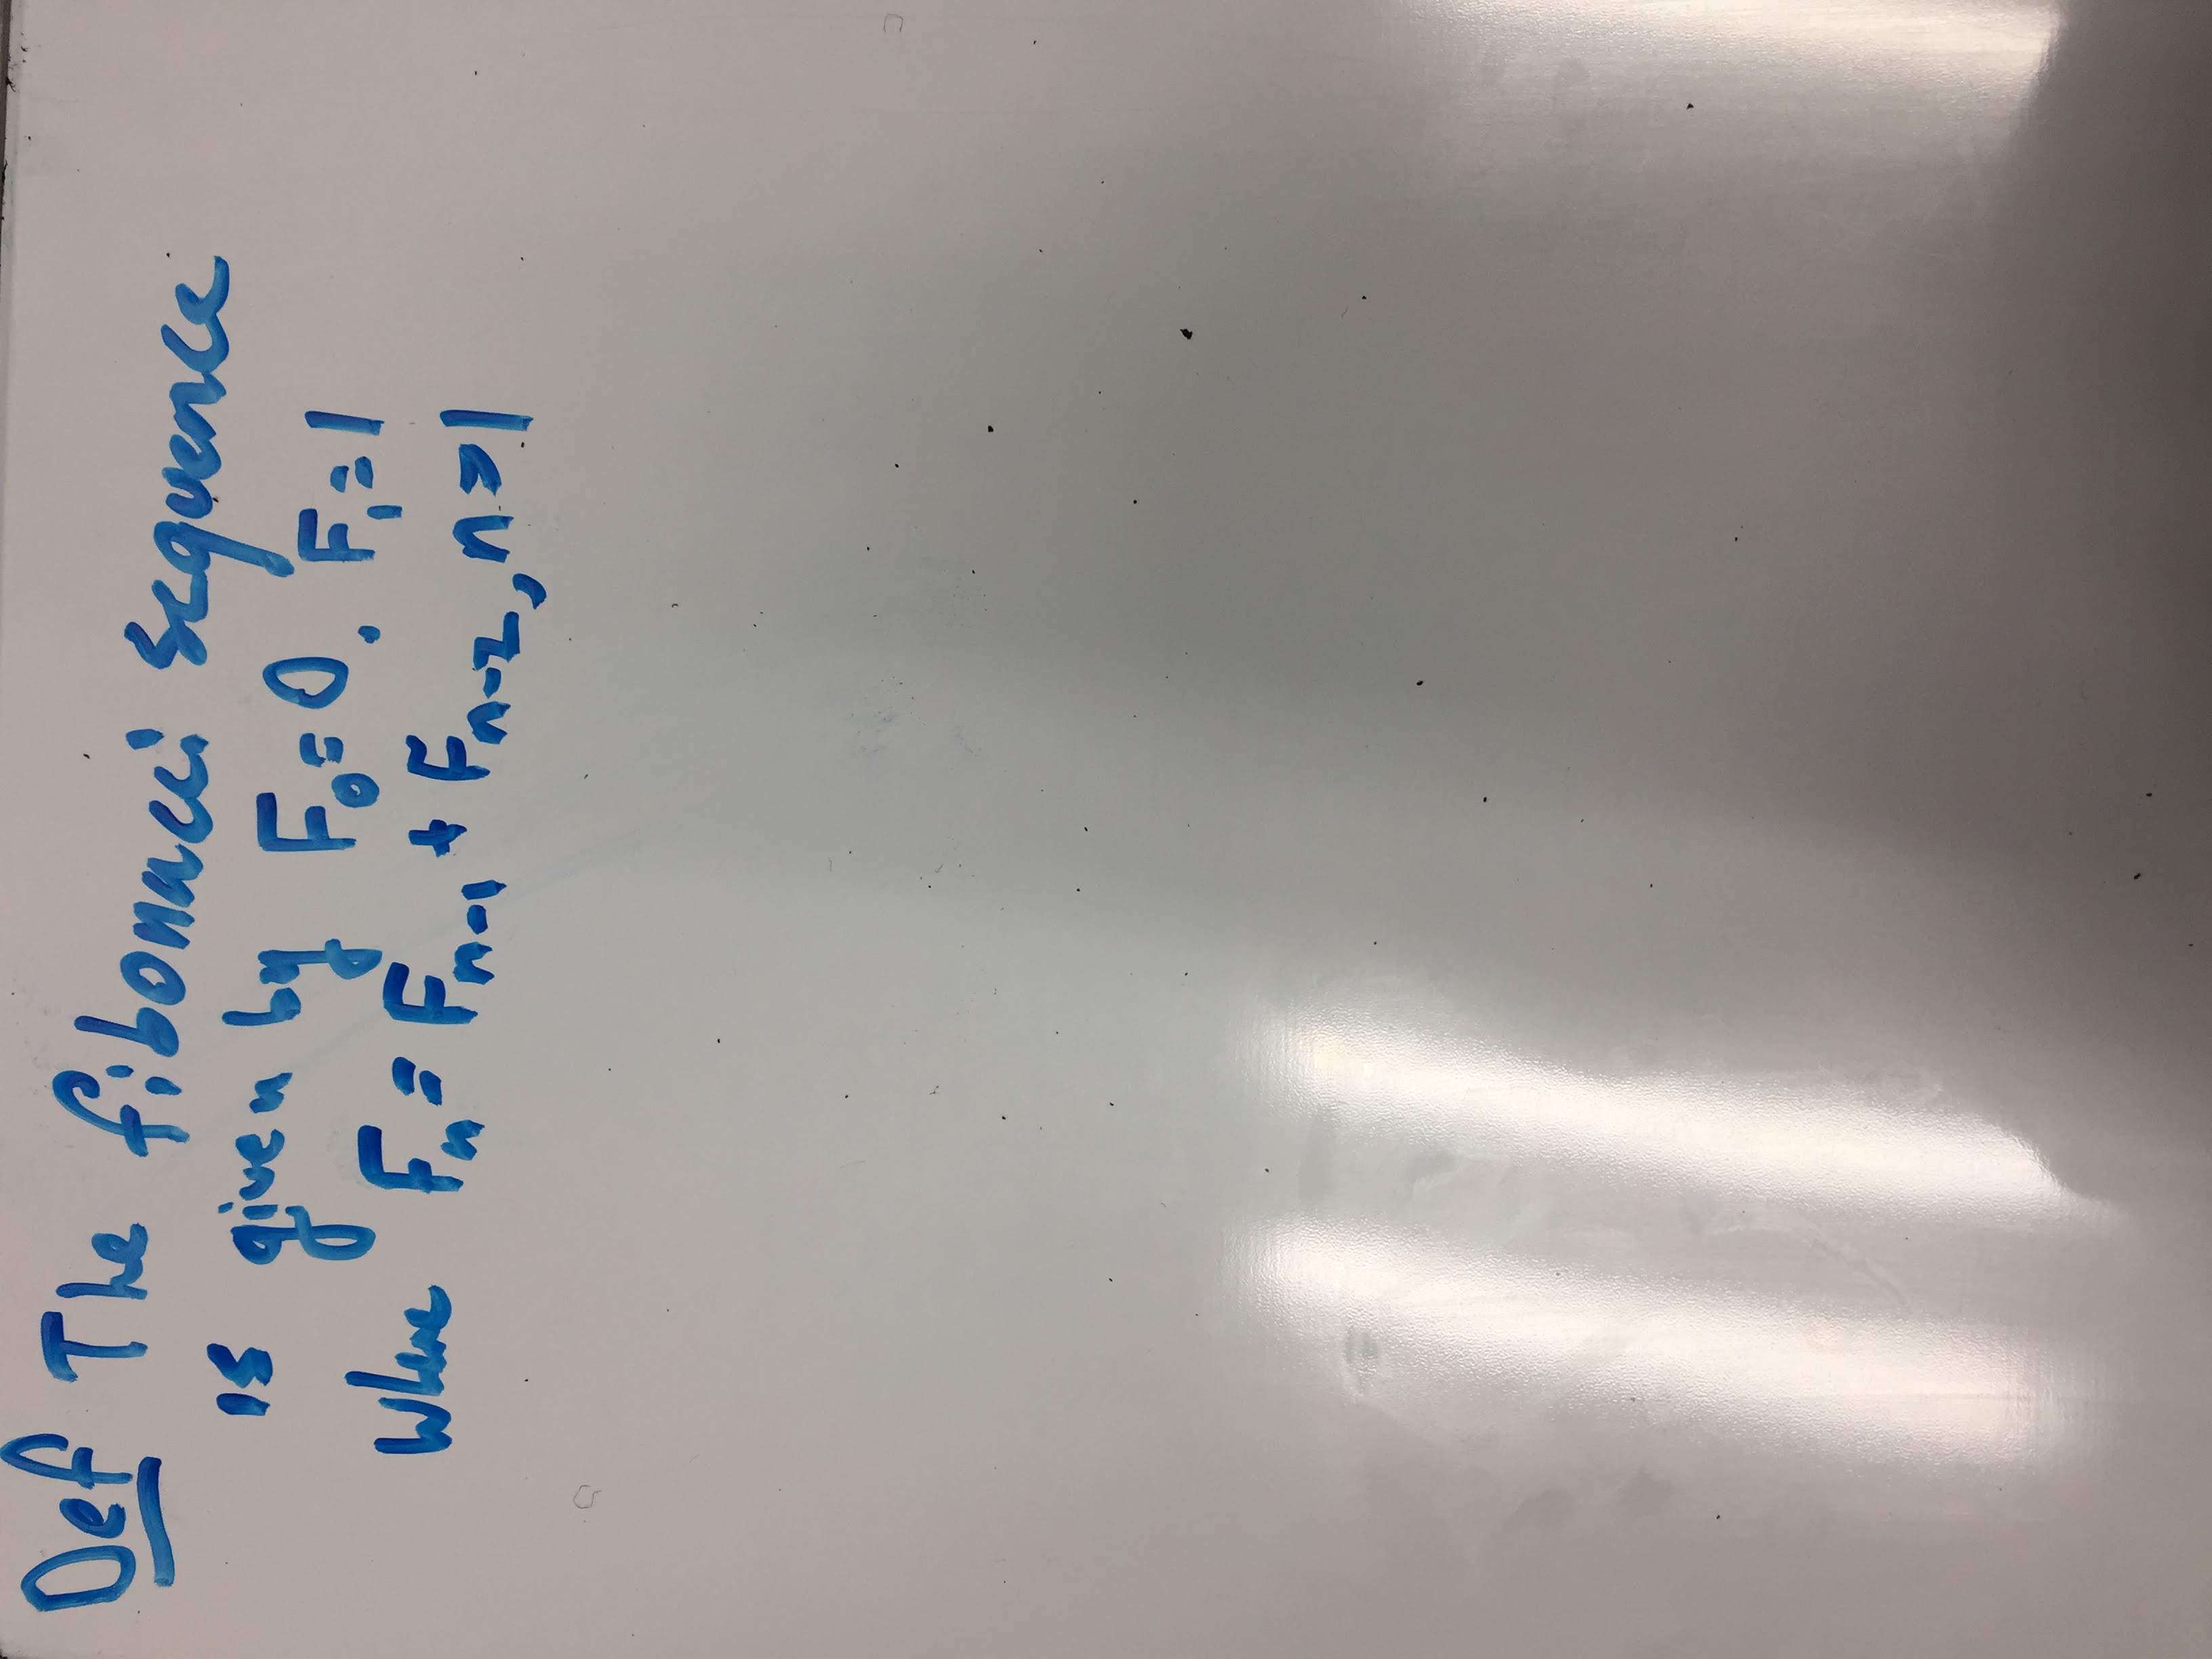 Def The fibonacci sequence
is given by F₀=0. F₁=1
Where Fₙ=Fₙ₋₁ + Fₙ₋₂, n>1